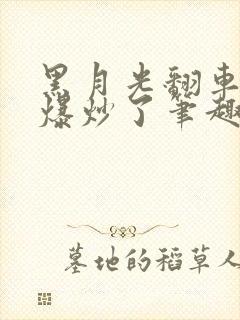 黑月光翻车
爆炒了笔趣
墓地的稻草人